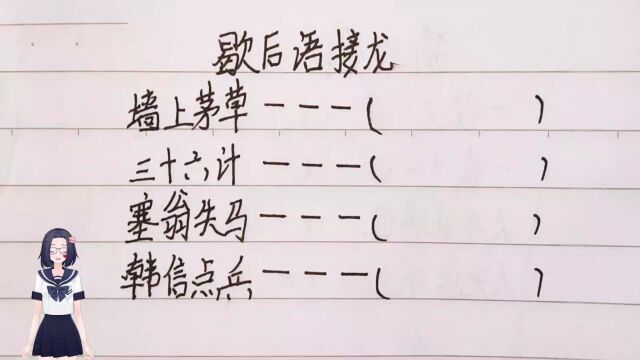 歇后语接龙
墙上茅草———(     )
三十六计———(     )
塞翁失马———(     )
韩信点兵———(     )